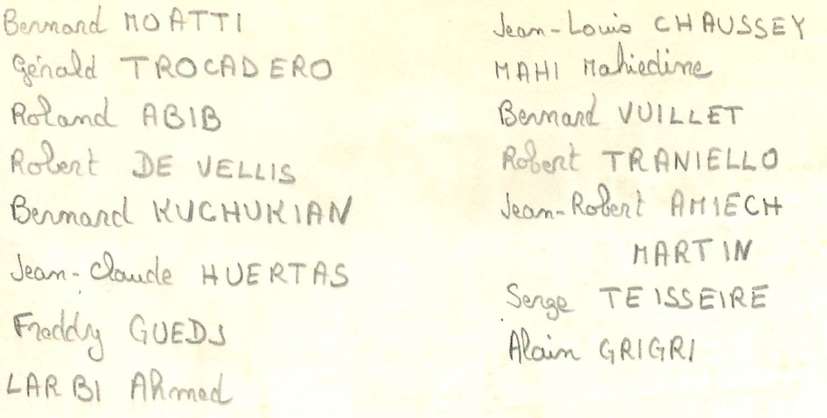 Bernard MOATTI
Gérald TROCADERO
Roland ABIB
Robert DE VELLIS
Bernard KUCHUKIAN
Jean-Claude HUERTAS
Freddy GUEDJ
LARBI Ahmed
Jean-Louis CHAUSSEY
MAHI Mahiedine
Bernard VUILLET
Robert TRANIELLO
Jean-Robert AMIECH
MARTIN
Serge TEISSEIRE
Alain GRIGRI